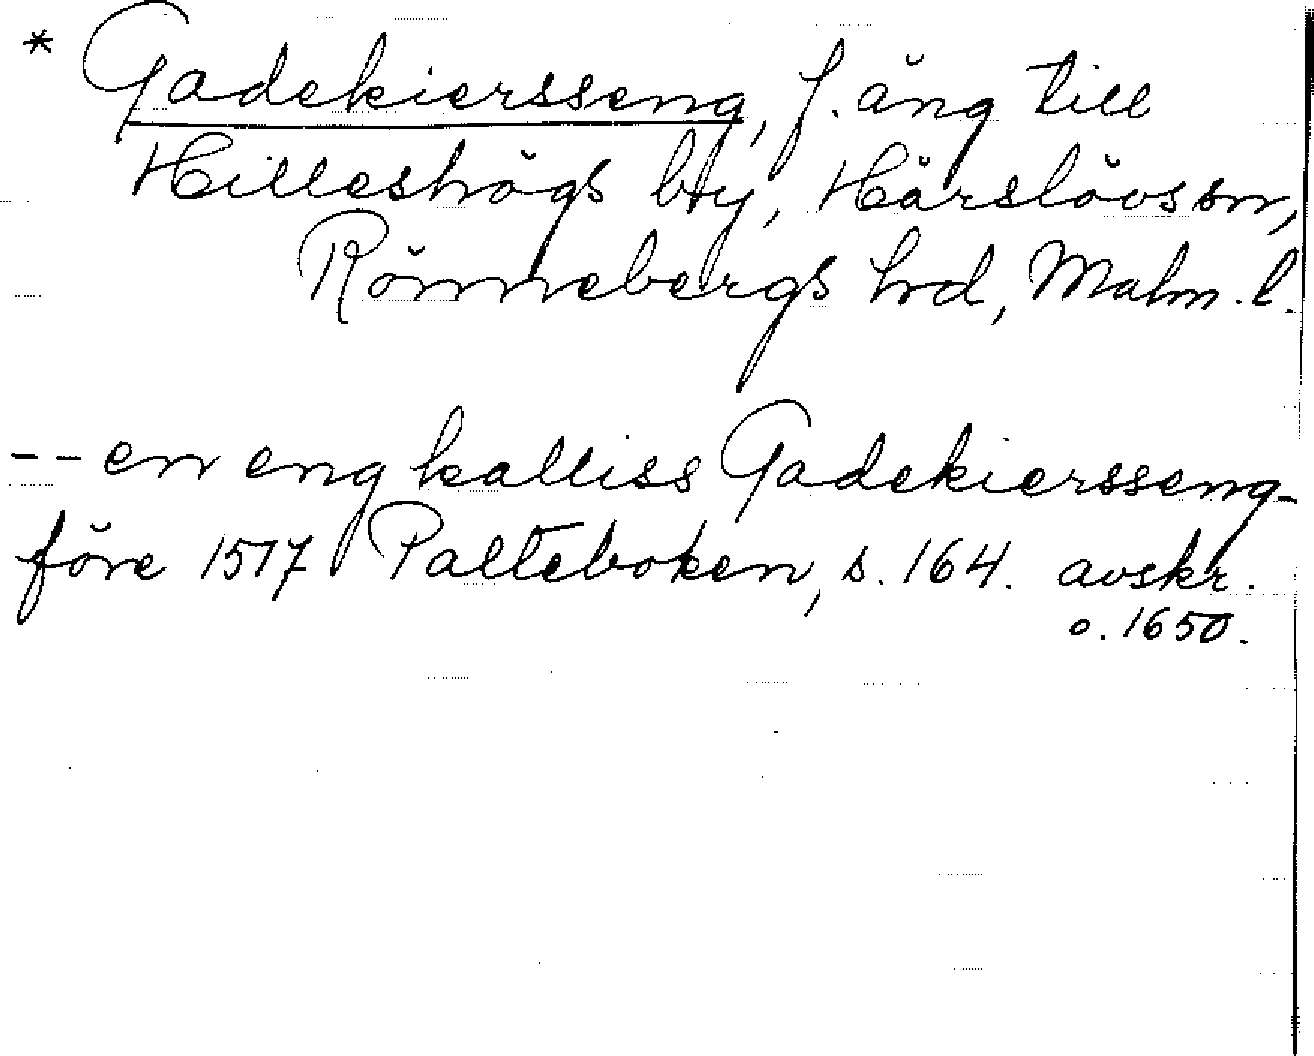 * Gadekiersseng, f. äng till
Hilleshögs by, Härslövs sn,
Rönnebergs hrd, Malm. l.
-- en eng kalliss Gadekiersseng -
före 1517 Palteboken, s. 164. avskr.
o. 1650.